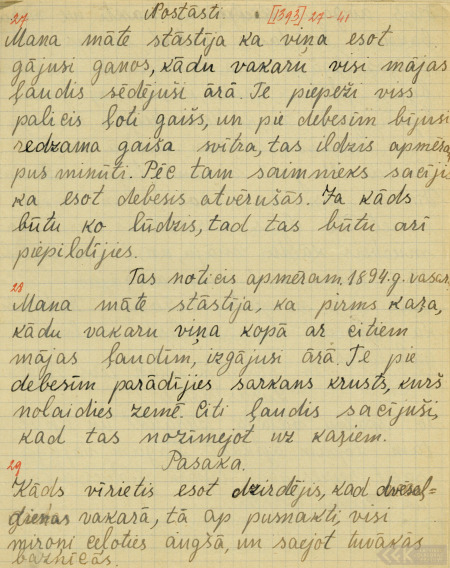 27 Nostāsti. [1393] 27-41
Mana māte stāstīja ka viņa esot
gājusi ganos, kādu vakaru visi mājas
ļaudis sēdējuši ārā. Te piepeži viss
palicis ļoti gaišs, un pie debesīm bijusi
redzama gaiša svītra, tas ildzis apmēra
pus minūti. Pēc tam saimnieks sacījis
ka esot debesis atvērušās. Ja kāds
būtu ko lūdzis, tad tas būtu arī
piepildījies.
Tas noticis apmēram 1894.g. vasar
28
Mana māte stāstīja, ka pirms kara,
kādu vakaru viņa kopā ar citiem
mājas ļaudīm, izgājusi ārā. Te pie
debesīm parādījies sarkans krusts, kurš
nolaidies zemē. Citi ļaudis sacījuši,
kad tas nozīmējot uz kariem.
29 Pasaka.
Kāds vīrietis esot dzirdējis, kad dvēseļ=
dienas vakarā, tā ap pusnakti, visi
mironi ceļoties augšā, un saejot tuvākās
baznīcās.